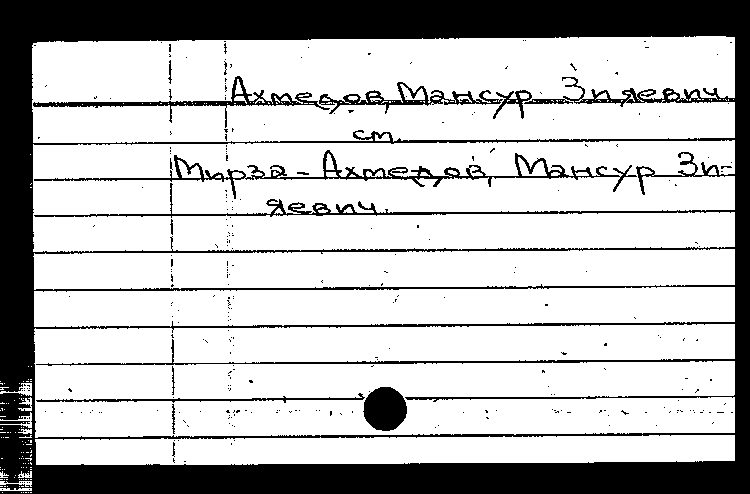 Ахмедов, Мансур Зияевич.
см.
Мирза-Ахмедов, Мансур Зи=
яевич.